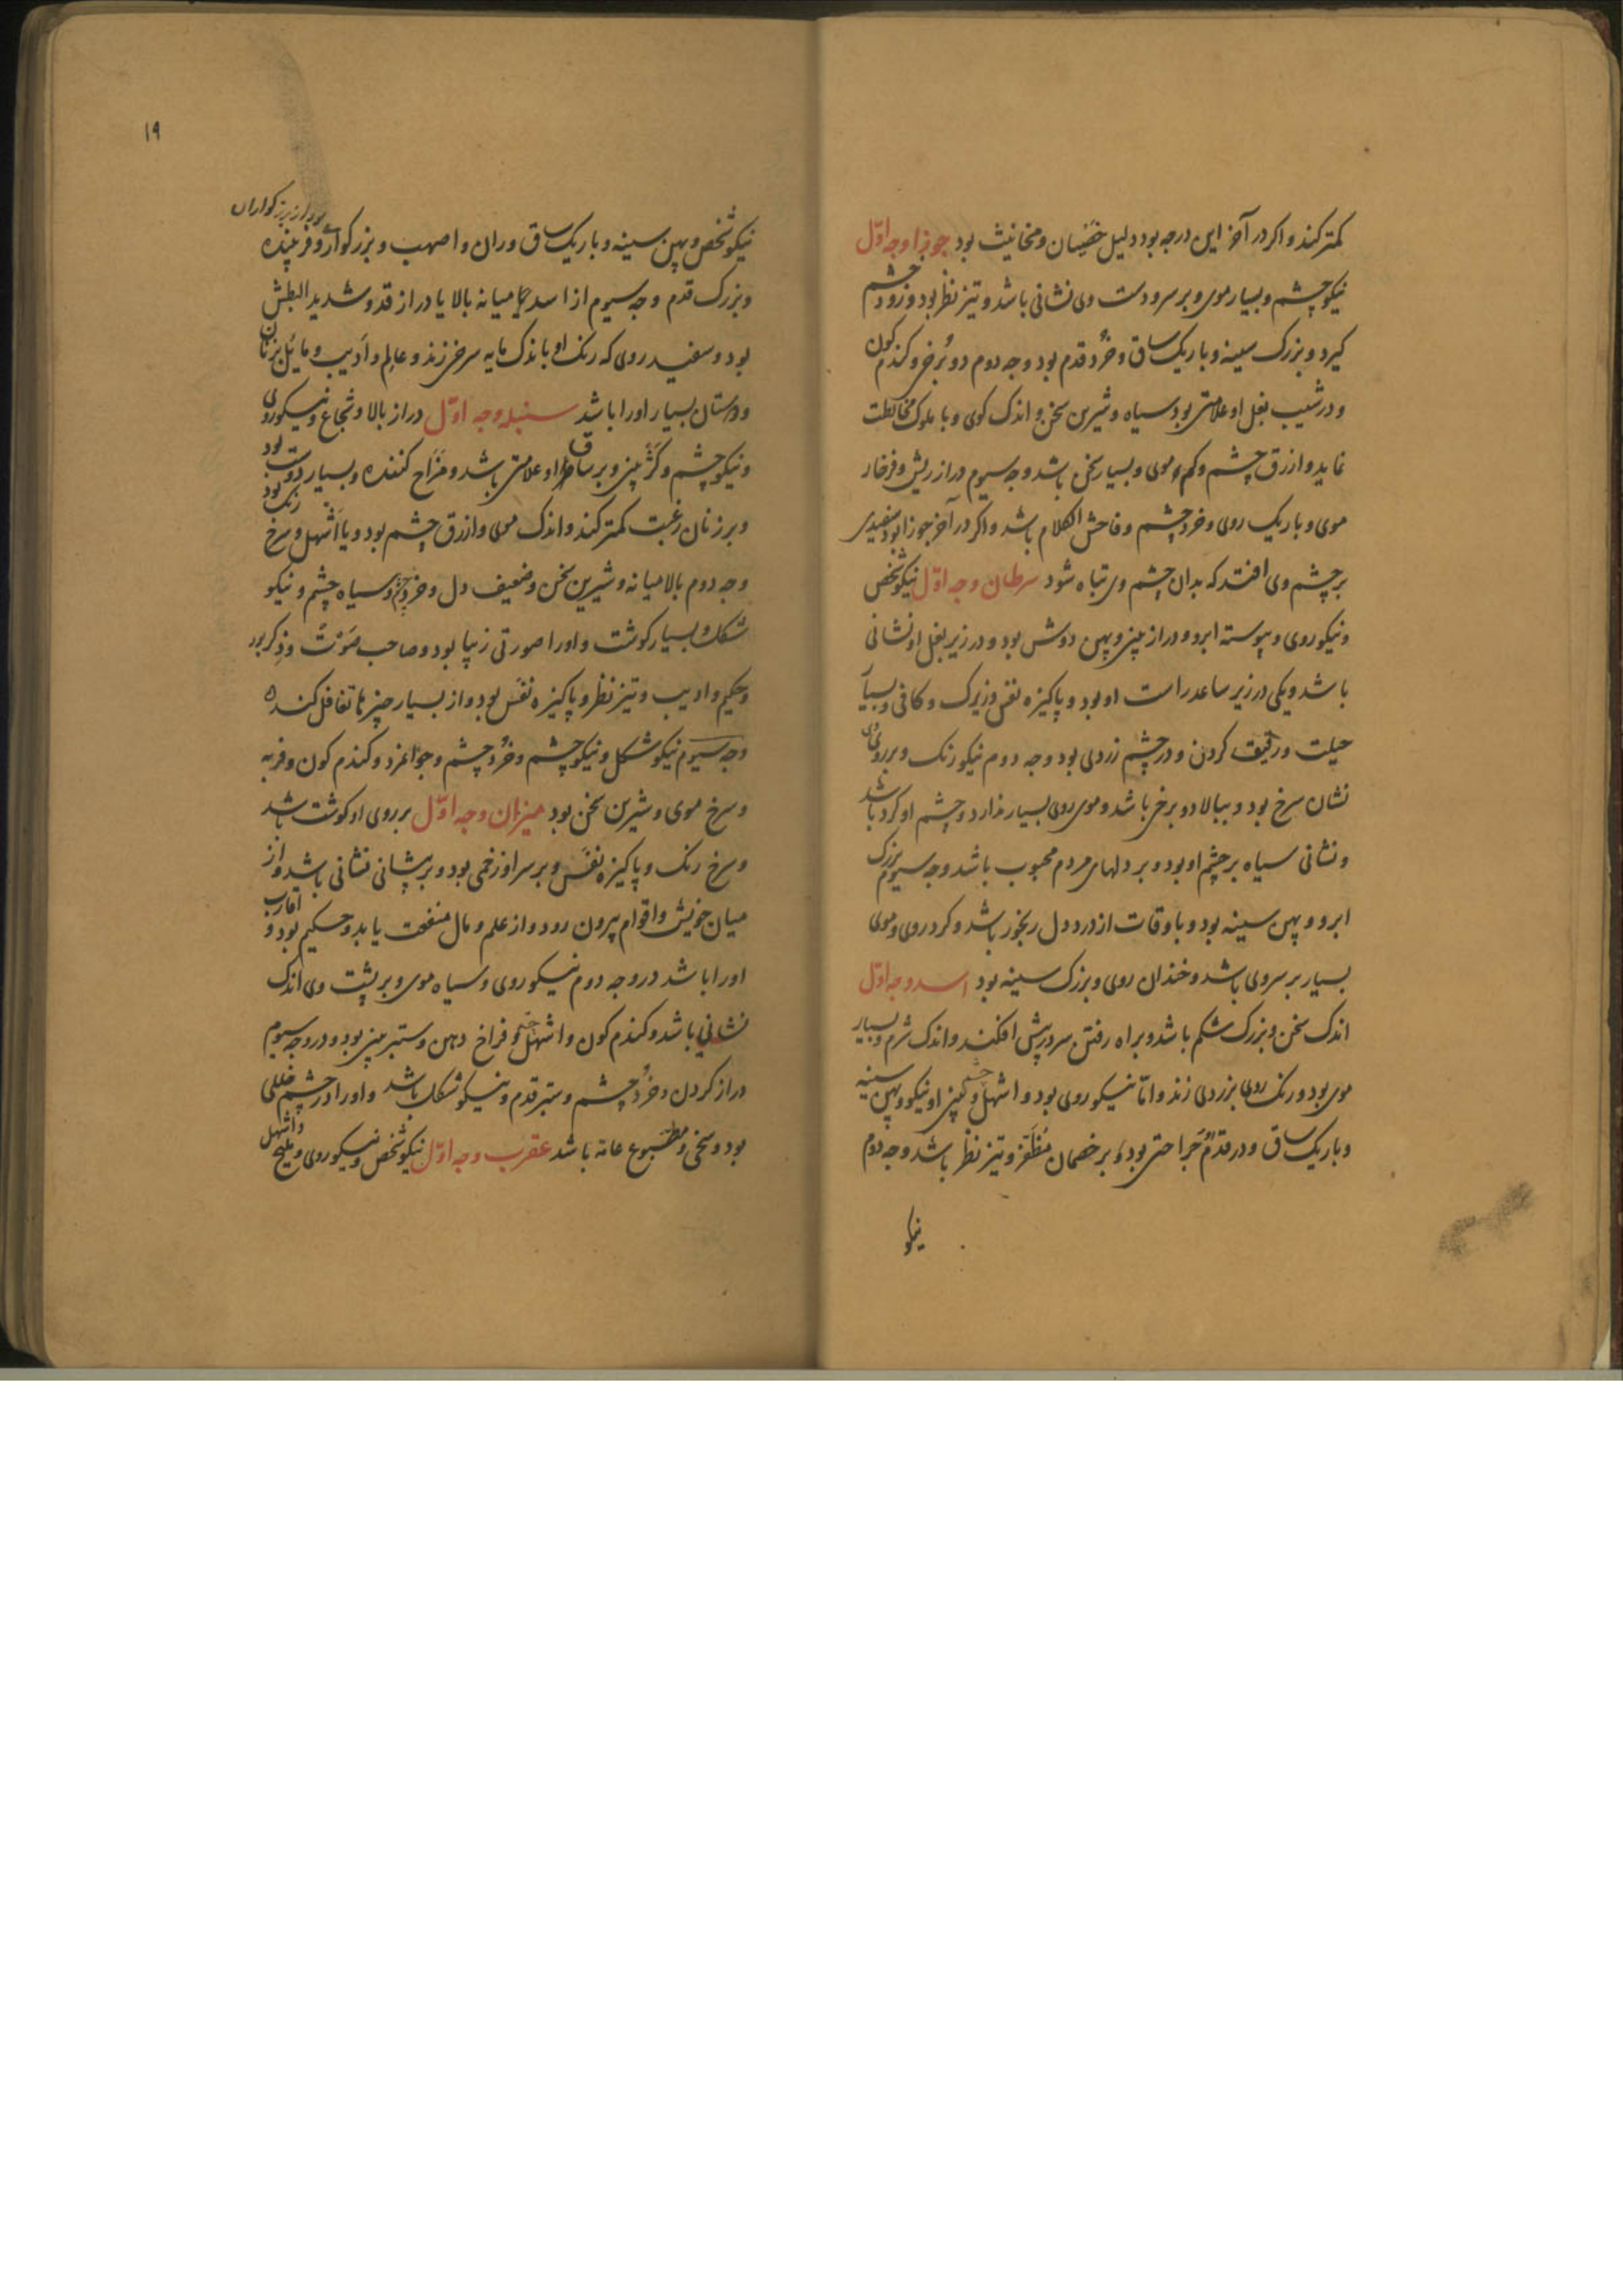 کمتر کند و اکر در آخر این درجه بود دلیل خَصِیان و مخانیث بود جوزا وجه اوّل
نیکو چشم و بسیار موی و بر سر و دست وی نشانی باشد و تیز نظر بود و زود خشم
کیرد و بزرک سینه و باریک ساق و خرُد قدم بود وجه دوم دو بُرخی و کندم کون
و در شیب بغل او علامتی بود سیاه و شیرین سخن و اندک کوی و با ملوک مخالطت
نماید و ازرق چشم و کم موی و بسیار سخن باشد وجه سیوم دراز ریش و فرخار
موی و باریک روی و خرد چشم و فاحش الکلام باشد و اکر در آخر جوزا بود سفیدی
بر چشم وی افتد که بدان چشم وی تباه شود سرطان وجه اوّل نیکو شخص
و نیکو روی و پیوسته ابرو و دراز بینی و پهن دوش بود و در زیر بغل او نشانی
باشد و یکی در زیر ساعد راست او بود و پاکیزه نفس و زیرک و کافی و بسیار
حیلت و رقیق کردن و در چشم زردی بود وجه دوم نیکو رنک و بر روی
نشان سرخ بود و ببالا دو برخی باشد و موی روی بسیار ندارد و چشم او کرد باشد
و نشانی سیاه بر چشم او بود و بر دلهای مردم محبوب باشد وجه سیوم بزرک
ابرو و پهن سینه بود و باوقات از درد دل رنجور باشد و کرد روی و موی
بسیار بر سر وی باشد و خندان روی و بزرک سینه بود اسد وجه اوّل
اندک سخن و بزرک شکم باشد و براه رفتن سر در پیش افکند و اندک شرم و بسیار
موی بود و رنک روی بزردی زند و امّا نیکو روی بود و اشهل چشم و بینی او نیکو و پهن سینه
و باریک ساق و در قدم جَراحتی بود و بر خصمان مُظفّر و تیز نظر باشد وجه دوم
نیکو
۱۹
بود از بزرکواران
نیکو شخص و پهن سینه و باریک ساق و ران و اصهب و بزرکوار و فریبنده
و بزرک قدم وجه سیوم از اسد میانه بالا یا دراز قد و شدید البطش
بود و سفید روی که رنک او باندک مایه سرخی زند و عالِم و اَدیب و مایُل بزنان
و دوستان بسیار او را باشد سنبله وجه اوّل دراز بالا و شجاع و نیکو روی
و نیکو چشم و کَژ بینی و بر ساق او علامتی باشد و مَزّاح کننده و بسیار دوست بود
و بر زنان رغبت کمتر کند و اندک موی و ازرق چشم بود و یا اَشهل و سرخ رنک بود
وجه دوم بالا میانه و شیرین سخن و ضعیف دل و خرد چشم و سیاه چشم و نیکو
شکل و بسیار کوشت و او را صورتی زیبا بود و صاحب صَوْت و ذِکر بود
و حکیم و ادیب و تیز نظر و پاکیزه نفَس بود و از بسیار چیزها تغافل کننده
وجه سیوم نیکو شکل و نیکو چشم و خرُد چشم و جوانمرد و کندم کون و فربه
و سرخ موی و شیرین سخن بود میزان وجه اوّل بر روی او کوشت باشد
و سرخ رنک و پاکیزه نفَس و بر سر او زخمی بود و بر پیشانی نشانی باشد و از
میان خویش و اقوام بیرون رود و از علم و مال منفعت یابد و حکیم بود و اقارب
او را باشد در وجه دوم نیکو روی و سیاه موی و بر پشت وی اندک
نشانی باشد و کندم کون و اشهل چشم و فراخ دهن و ستبر بینی بود و در وجه سیوم
دراز کردن و خرُد چشم و ستبر قدم و نیکو شکل باشد و او را در چشم خللی
بود و سخی و مطبوع عامّه باشد عقرب وجه اوّل نیکو شخص و نیکو روی و ملیح و اشهل